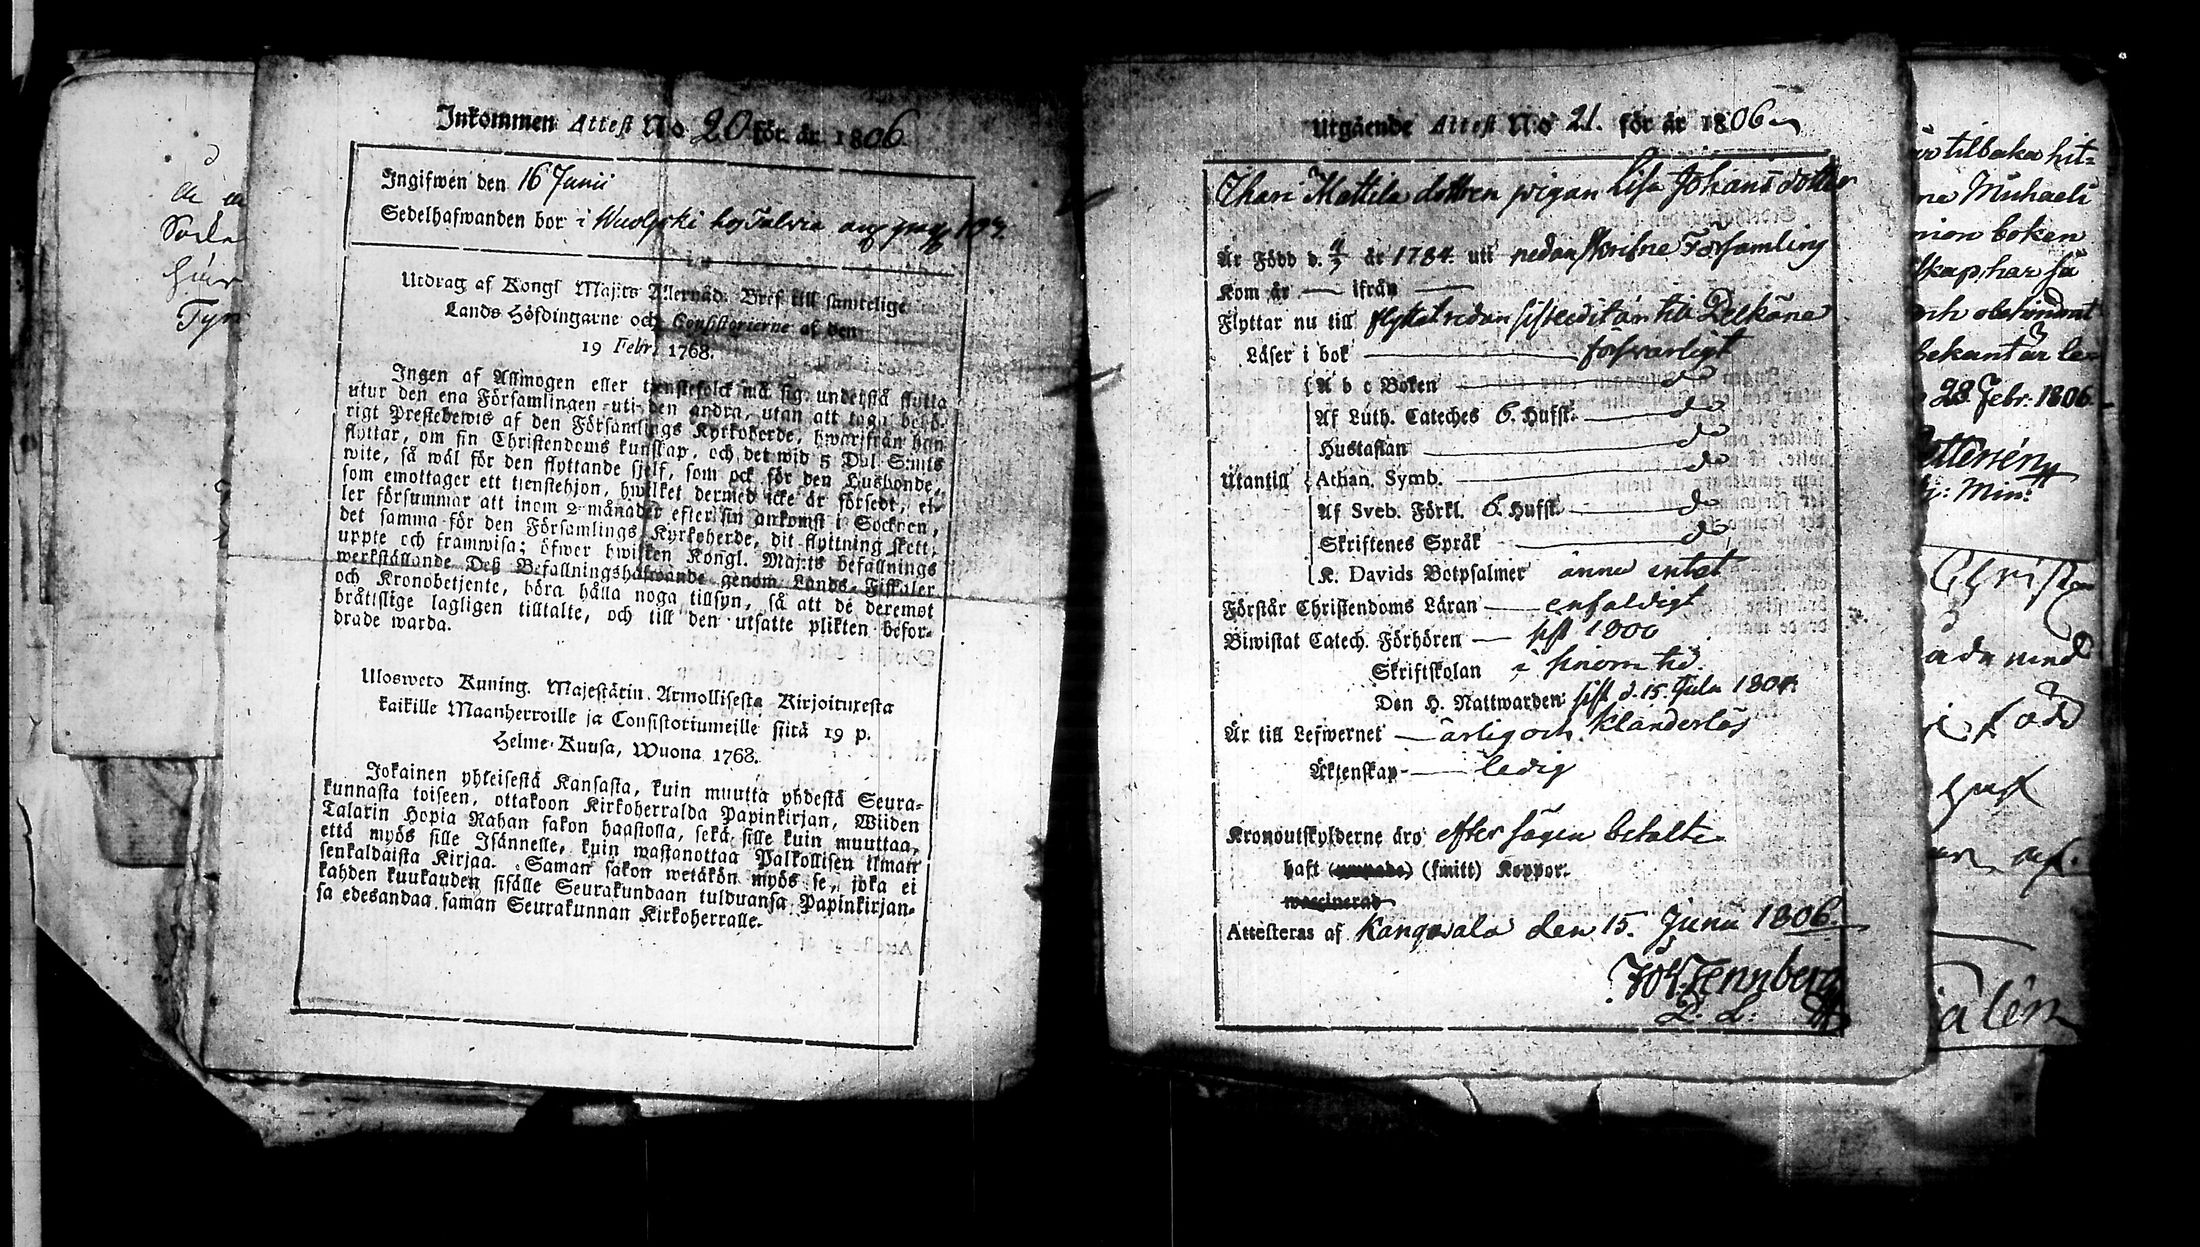 Inkommen Attest No 20 för år 1806.
Ingifwen den 16 Junii
Sedelhafwanden bor i
Utdrag af Kongl Maj:ts Allernåd. Bref till samtelige
Lands Höfdingarne och Consistorierne af den
19 Febr. 1768.
Ingen af Allmogen eller tjenstefolck må sig understå flytta
utur den ena Församlingen uti den andra, utan att taga behö-
rigt Prestebewis af den Församlings Kyrkoherde, hwarifrån han
flyttar, om sin Christendoms kunskap, och det wid 5 Dal. S:mts
wite, så wäl för den flyttande sjelf, som ock för den Husbonde,
som emottager ett tienstehjon, hwilket dermed icke är försedt, el-
ler försummar att inom 2 månader efter sin ankomst i Socknen,
det samma för den Församlings Kyrkoherde, dit flyttning skett,
uppte och framwisa; öfwer hwilken Kongl. Maj:ts befallnings
werkställande Deß Befallningshafwande genom Lands-Fiskaler
och Kronobetjente, böra hålla noga tillsyn, så att de deremot
bråttslige lagligen tilltalte, och till den utsatte plikten befor-
drade warda.
Ulosweto Kuning. Majestätin Armollisesta Kirjoituxesta
kaikille Maanherroille ja Consistoriumeille siitä 19 p.
Helme-Kuusa, Wuona 1768.
Jokainen yhteisestä Kansasta, kuin muutta yhdestä Seura-
kunnasta toiseen, ottakoon Kirkoherralda Papinkirjan, Wiiden
Talarin Hopia Rahan sakon haastolla, sekä sille kuin muuttaa,
että myös sille Isännelle, kuin wastanottaa Palkollisen ilman
senkaldaista Kirjaa. Saman sakon wetäkön myös se, joka ei
kahden kuukauden sisälle Seurakundaan tulduansa Papinkirjan-
sa edesandaa saman Seurakunnan Kirkoherralle.
Utgående Attest N:o 21. för år 1806
Mattila dottren pigan Lisa Johansdotter
Är Född d. 4/3 år 1784. uti nedanskrifne Församling
Kom år — ifrån —
Flyttar nu till flyttat redan sistledit år till Pelkäne
Läser i bok — försvarligt
A b c Boken — do
Af Luth. Cateches 6. Hufst. — do
Hustaflan — do
Utantill Athan. Symb. — do
Af Sveb. Förkl. 6. Hufst. — do
Skriftenes Språk — do
K. Davids Botpsalmer ännu intet
Förstår Christendoms Läran — enfaldigt
Biwistat Catech. Förhören — sist 1800
Skriftskolan i sinom tid.
Den H. Nattwarden sist d. 15. Julii 1804.
Är till Lefwernet — ärlig och klanderlös
Äktenskap — ledig
Kronoutskylderne äro efter sägen betalte
haft (smitt) Koppor.
Attesteras af Kangasala den 15. Junii 1806.
Joh. Tennberg
tilbaka hit=
Michaeli
boken
har så
obehindrat
bekant är le-
28 Febr. 1806.
Min:
född